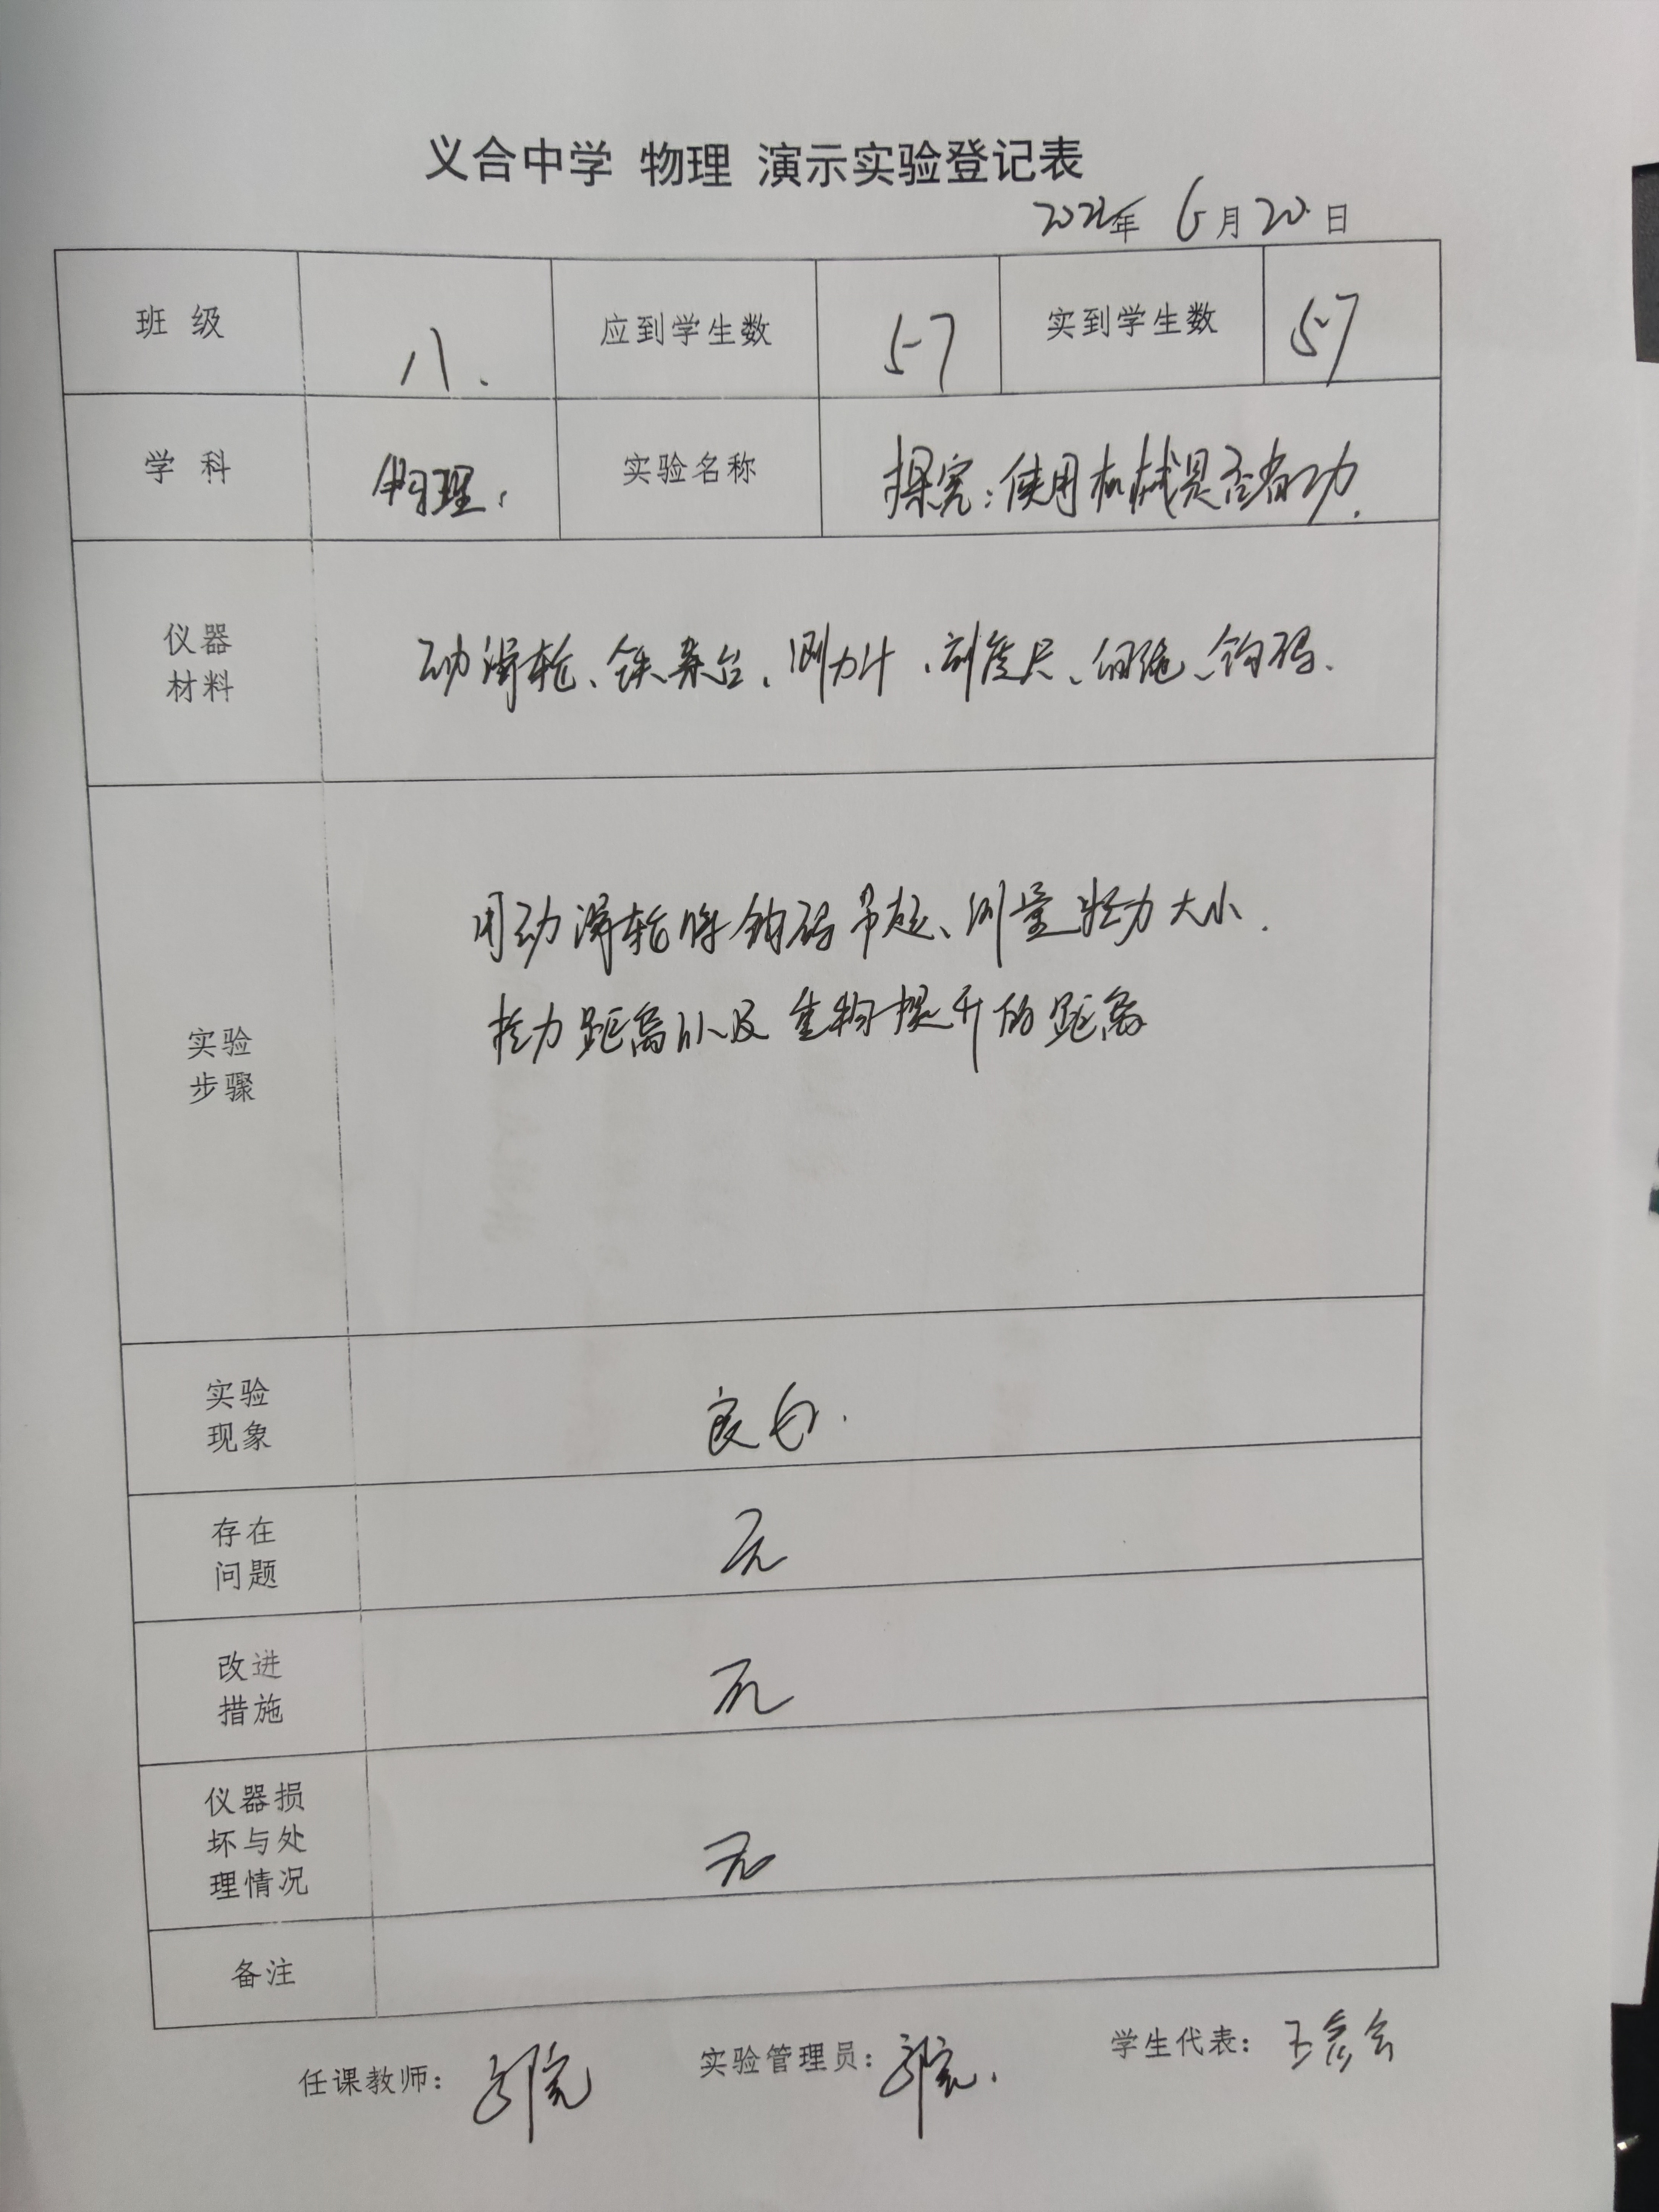 义合中学 物理 演示实验登记表
2022年 6月20日
班 级 八. 应到学生数 57 实到学生数 57
学 科 物理. 实验名称 探究:使用机械是否省功.
仪器
材料
动滑轮、铁架台、测力计、刻度尺、细绳、钩码.
实验
步骤
用动滑轮将钩码吊起、测量拉力大小.
拉力距离以及重物提升的距离
实验
现象
良好.
存在
问题
无
改进
措施
无
仪器损
坏与处
理情况
无
备注
任课教师: 实验管理员: 学生代表: 王